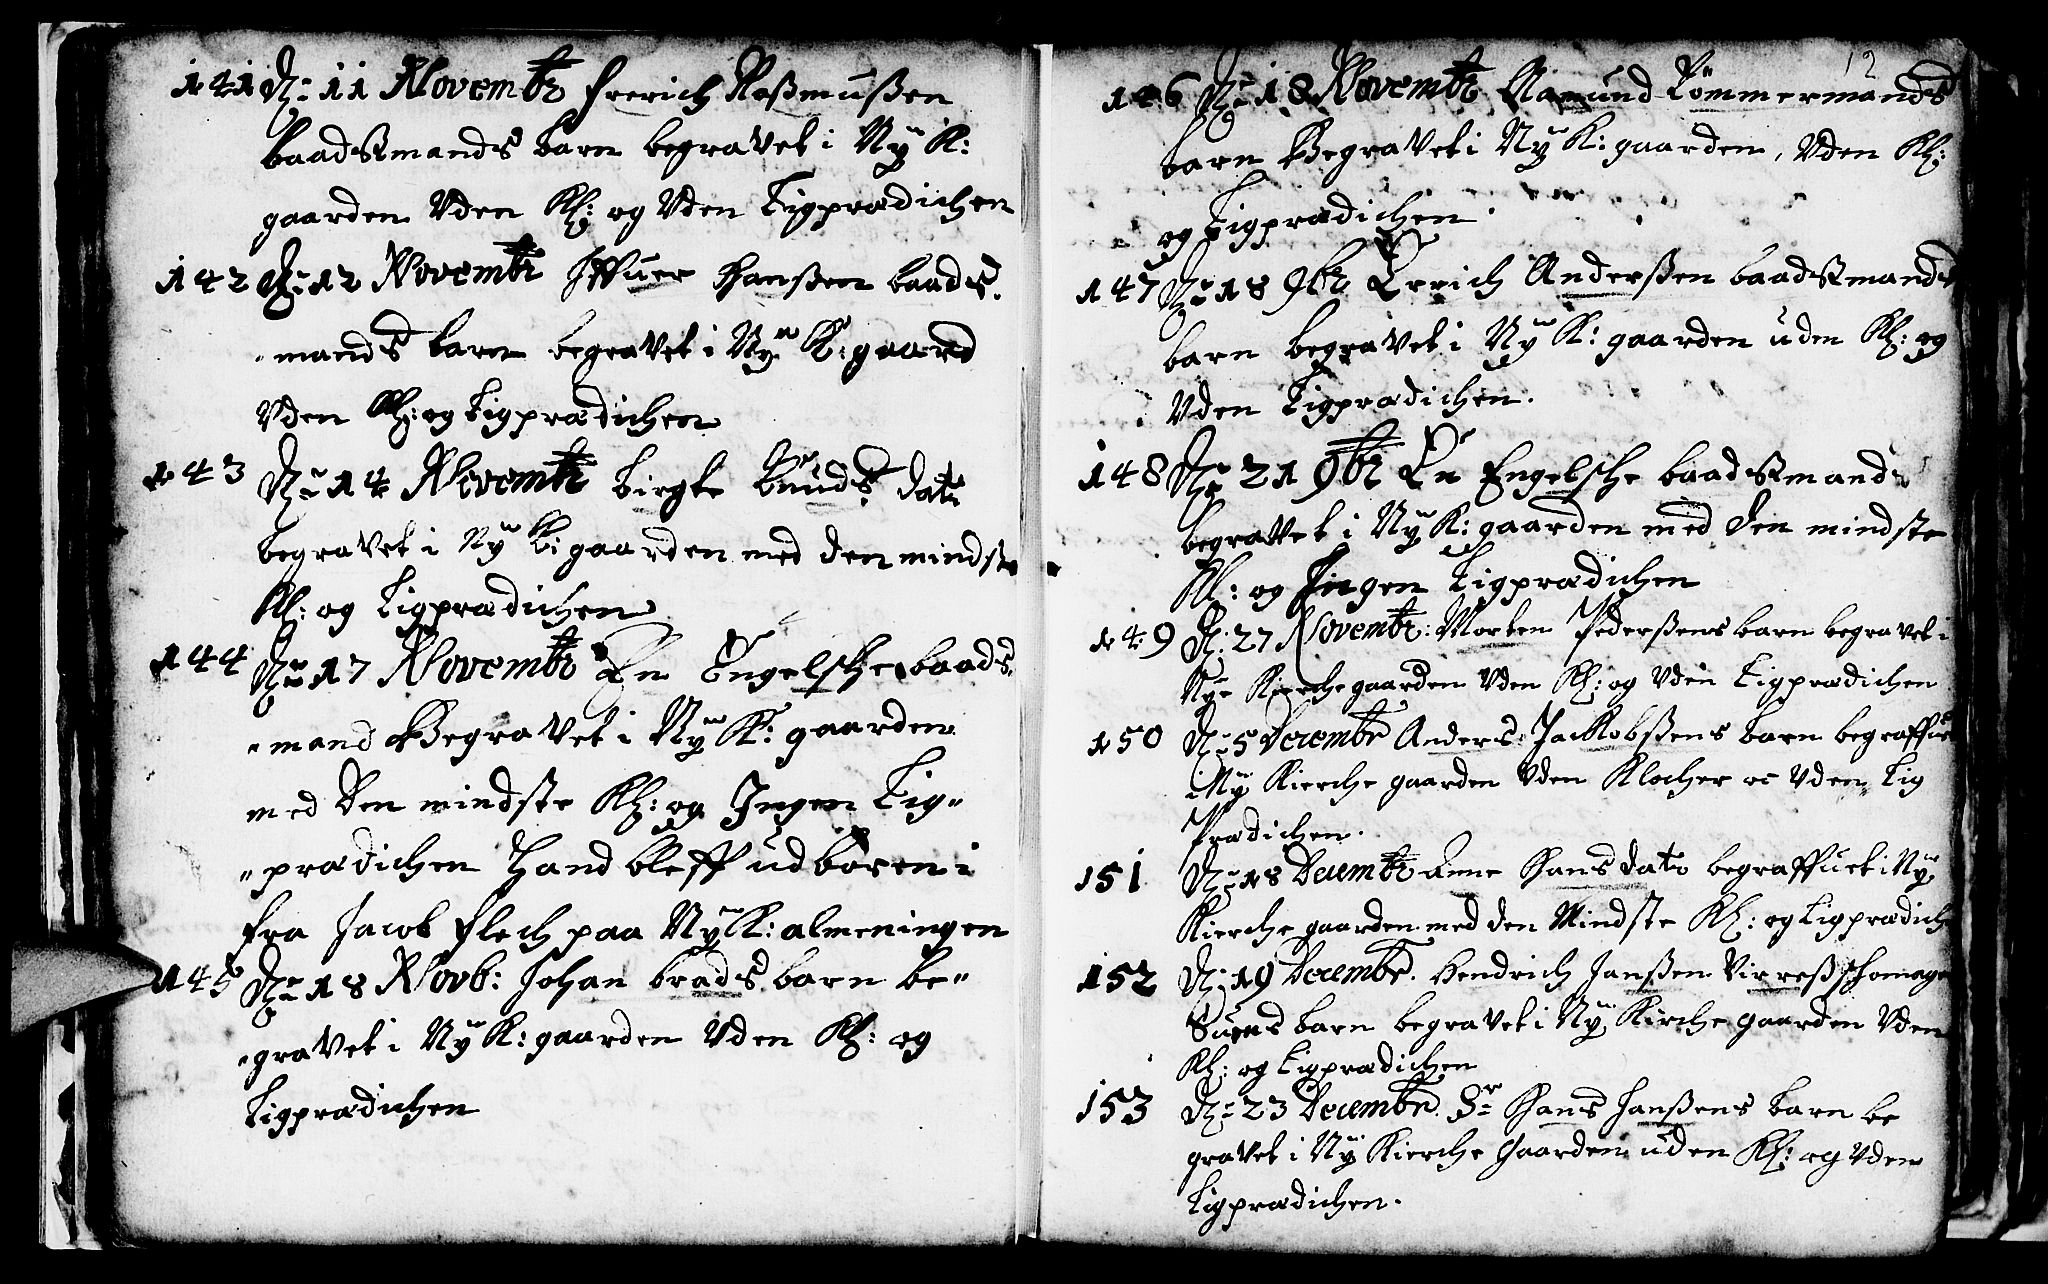 141 D: 11 Novembr frerich Raßmußen
baadsmands barn begravet i Ny K:
gaarden Vden Kl: og Vden Ligprædichen
142 D: 12 Novembr Iffuer Hanßen baads
mands barn begravet i Ny K: gaard
Vden Kl: og Ligprædichen
143 D: 14 Novembr birgte Knuds dat:
begravet i Ny K: gaarden med den mindste
Kl: og Ligprædichen
144 D: 17 Novembr En Engelsche baads
"mand Begravet i Ny K: gaarden
med den mindste Kl: og Ingen Lig"
"prædichen Hand bleff udbören i
fra Jacob flech paa Ny K: almeningen
145 D: 18 Novb: Johan brads barn be"
"gravet i Ny K: gaarden Vden Kl: og
Ligprædichen
12
146 D: 18 Novembr Aamund Tömmermands
barn Begravet i Ny K: gaarden, Vden Kl:
og Ligprædichen.
147 D: 18 9br Errich Anderßen baadsmands
barn begravet i Ny K: gaarden uden Kl: og
Vden Ligprædichen.
148 D: 21 9br En Engelsche baadsmand
begravet i Ny K: gaarden med den mindste
Kl: og Ingen Ligprædichen
149 D: 27 Novembr: Morten Pederßens barn begravet i
Nye Kierche gaarden Vden Kl: og Vden Ligprædichen
150 D: 5 Decembr Anders Jackobßens barn begraffuet
i Ny Kierche gaarden Vden Klocher oc Vden Lig
Prædichen.
151 D: 18 Decembr Anne Hans dat: begraffuet i Ny
Kierche gaarden med den Mindste Kl: og Ligprædich
152 D: 19 Decembr. Hendrich Janßen Schomager
Suends barn begravet i Ny Kirche gaarden Vden
Kl: og Ligprædichen
153 D: 23 Decembr. Sr Hans Janßens barn be
gravet i Ny Kierche Gaarden uden Kl: og Vden
Ligprædichen.